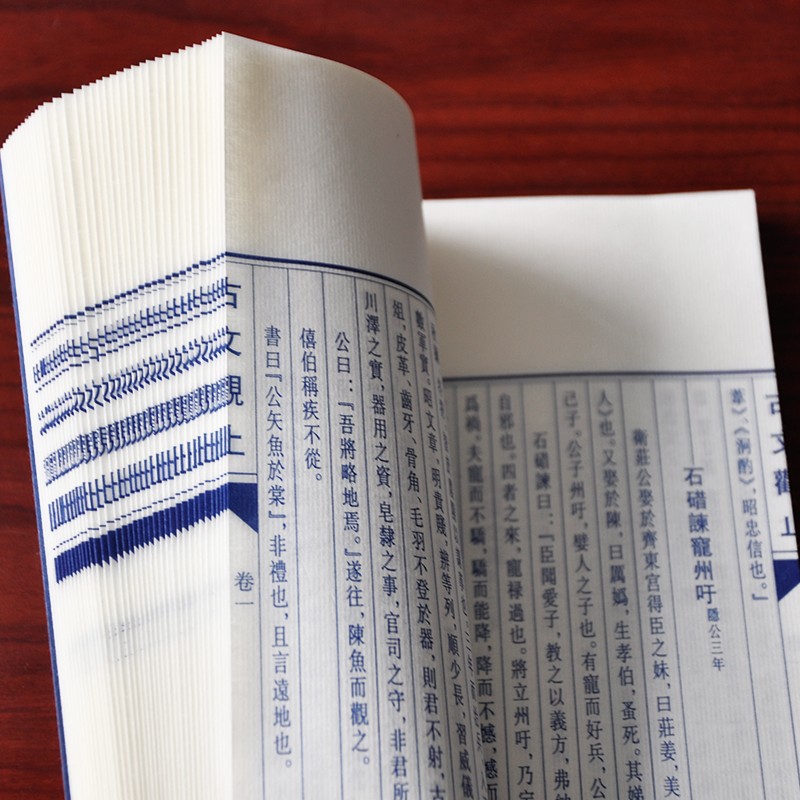 古文觀止
葦》、《泂酌》,昭忠信也。』
石碏諫寵州吁 隱公三年
衛莊公娶於齊東宮得臣之妹,曰莊姜,美
人》也。又娶於陳,曰厲媯,生孝伯,蚤死。其娣
己子。公子州吁,嬖人之子也。有寵而好兵,公
石碏諫曰:『臣聞愛子,教之以義方,弗納
自邪也。四者之來,寵祿過也。將立州吁,乃定
爲禍。夫寵而不驕,驕而能降,降而不憾,憾而
數軍實。昭文章,明貴賤,辨等列,順少長,習威儀
俎,皮革、齒牙、骨角、毛羽不登於器,則君不射,古
川澤之實,器用之資,皁隸之事,官司之守,非君所
公曰:『吾將略地焉。』遂往,陳魚而觀之。
僖伯稱疾不從。
書曰『公矢魚於棠』,非禮也,且言遠地也。
古文觀止
卷一